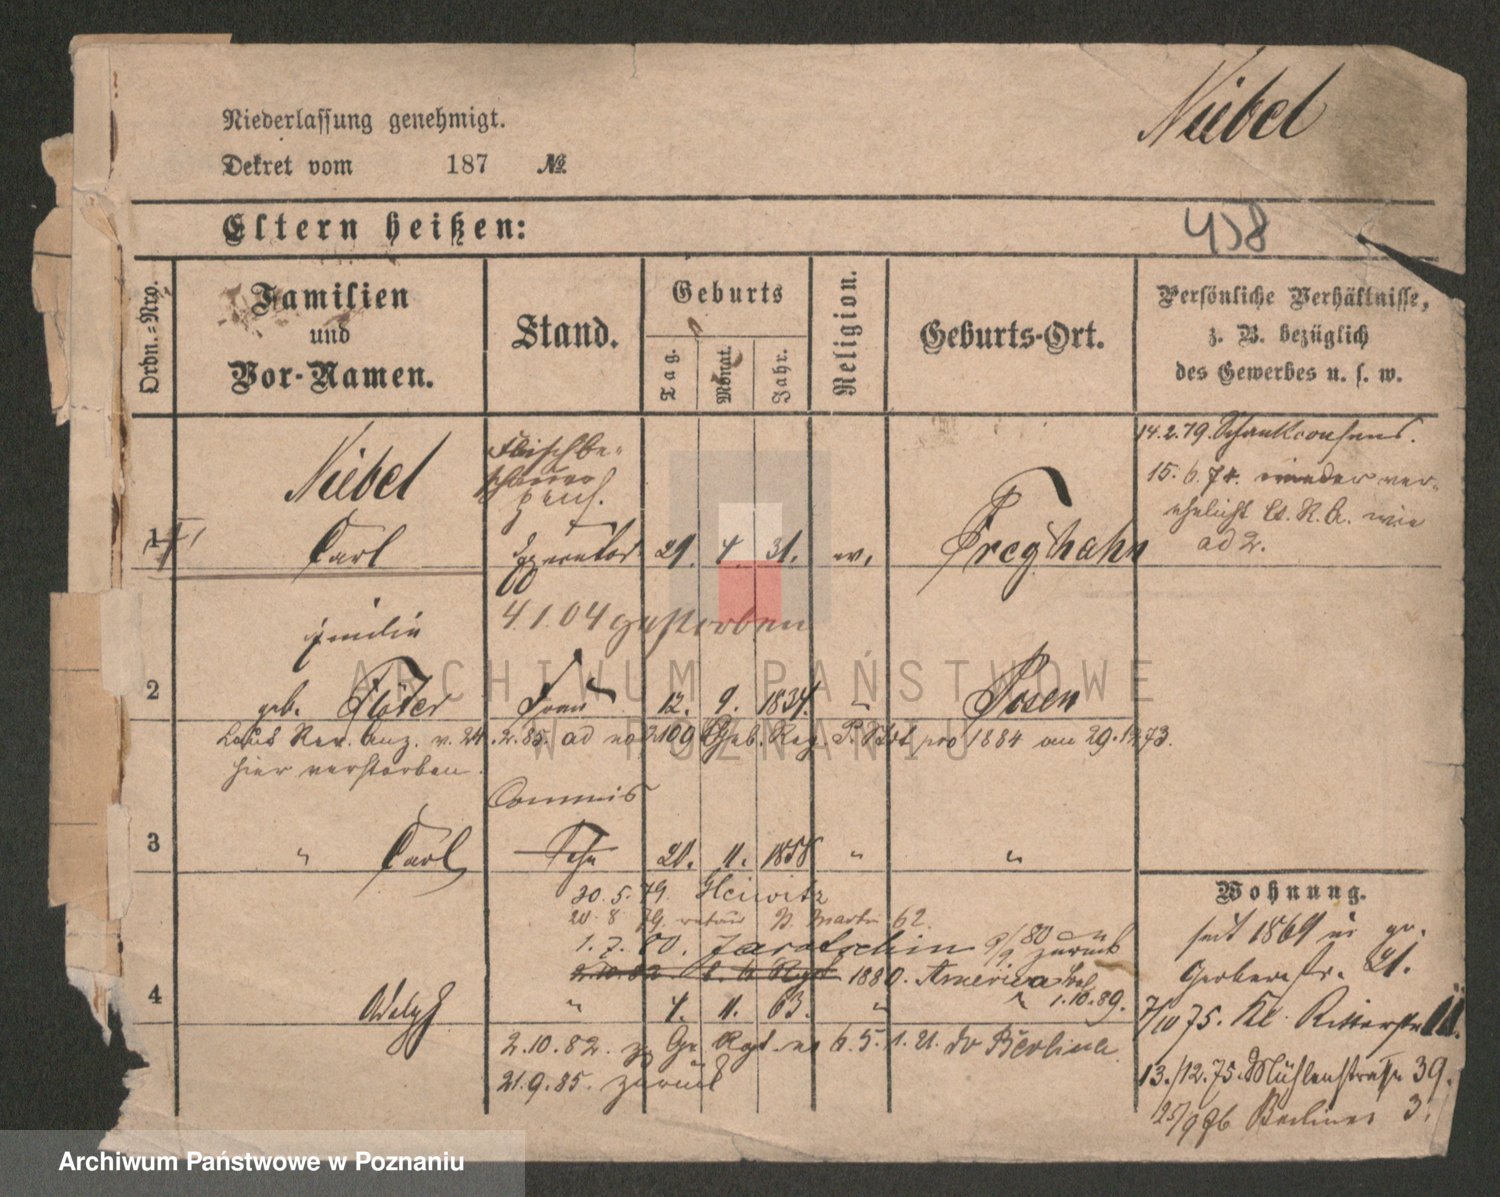 Niebel
Niederlassung genehmigt.
Dekret vom 187 №
Eltern heißen:
458
Ordn.=Nro.
Familien
und
Vor-Namen.
Stand.
Geburts
Tag.
Monat.
Jahr.
Religion.
Geburts-Ort.
Persönliche Verhältnisse,
z. B. bezüglich
des Gewerbes u. s. w.
14.2.79. Schankconsens.
Niebel
Fleischbe-
schauer
15.6.74. wieder ver-
ehelicht lt. R. A. wie
ad 2.
1
Carl
21. 4. 31. ev.
4.1.04 gestorben
2
geb.
Frau 12. 9. 1834. "
Posen
Laut Rev. Anz. v. 24.2.85. ad no 2109 Geb. Reg. P. pro 1884 am 29.12.73.
hier verstorben.
Commis
3
" Carl
Sohn
21. 11. 1858 " "
30.5.79. Gleiwitz
20.8.79. retour St. Martin 62.
1.7.80. Jarotschin 9/9 80 zurück
2.10.82
1880. America
1.10.89.
4
Adolph " 4. 11. 63. " "
2.10.82. 6.5.1.21. Berlin
21.9.85. zurück
Wohnung.
seit 1869 in gr.
Gerberstr. 21.
7/10 75. Kl. Ritterstr.
13./12.75. Mühlenstrasse 39.
Berliner 3.
ARCHIWUM PAŃSTWOWE
W POZNANIU
Archiwum Państwowe w Poznaniu